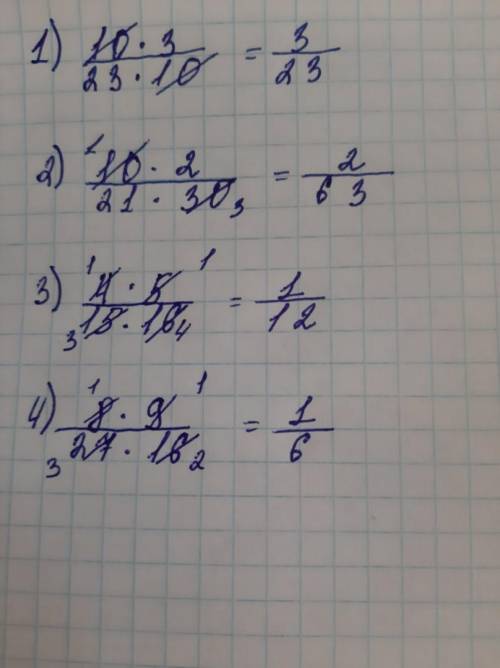 1) 10 · 3 / 23 · 10 = 3 / 23
2) 1 10 · 2 / 21 · 30 3 = 2 / 63
3) 1 4 · 5 1 / 3 15 · 16 4 = 1 / 12
4) 1 8 · 9 1 / 3 27 · 16 2 = 1 / 6